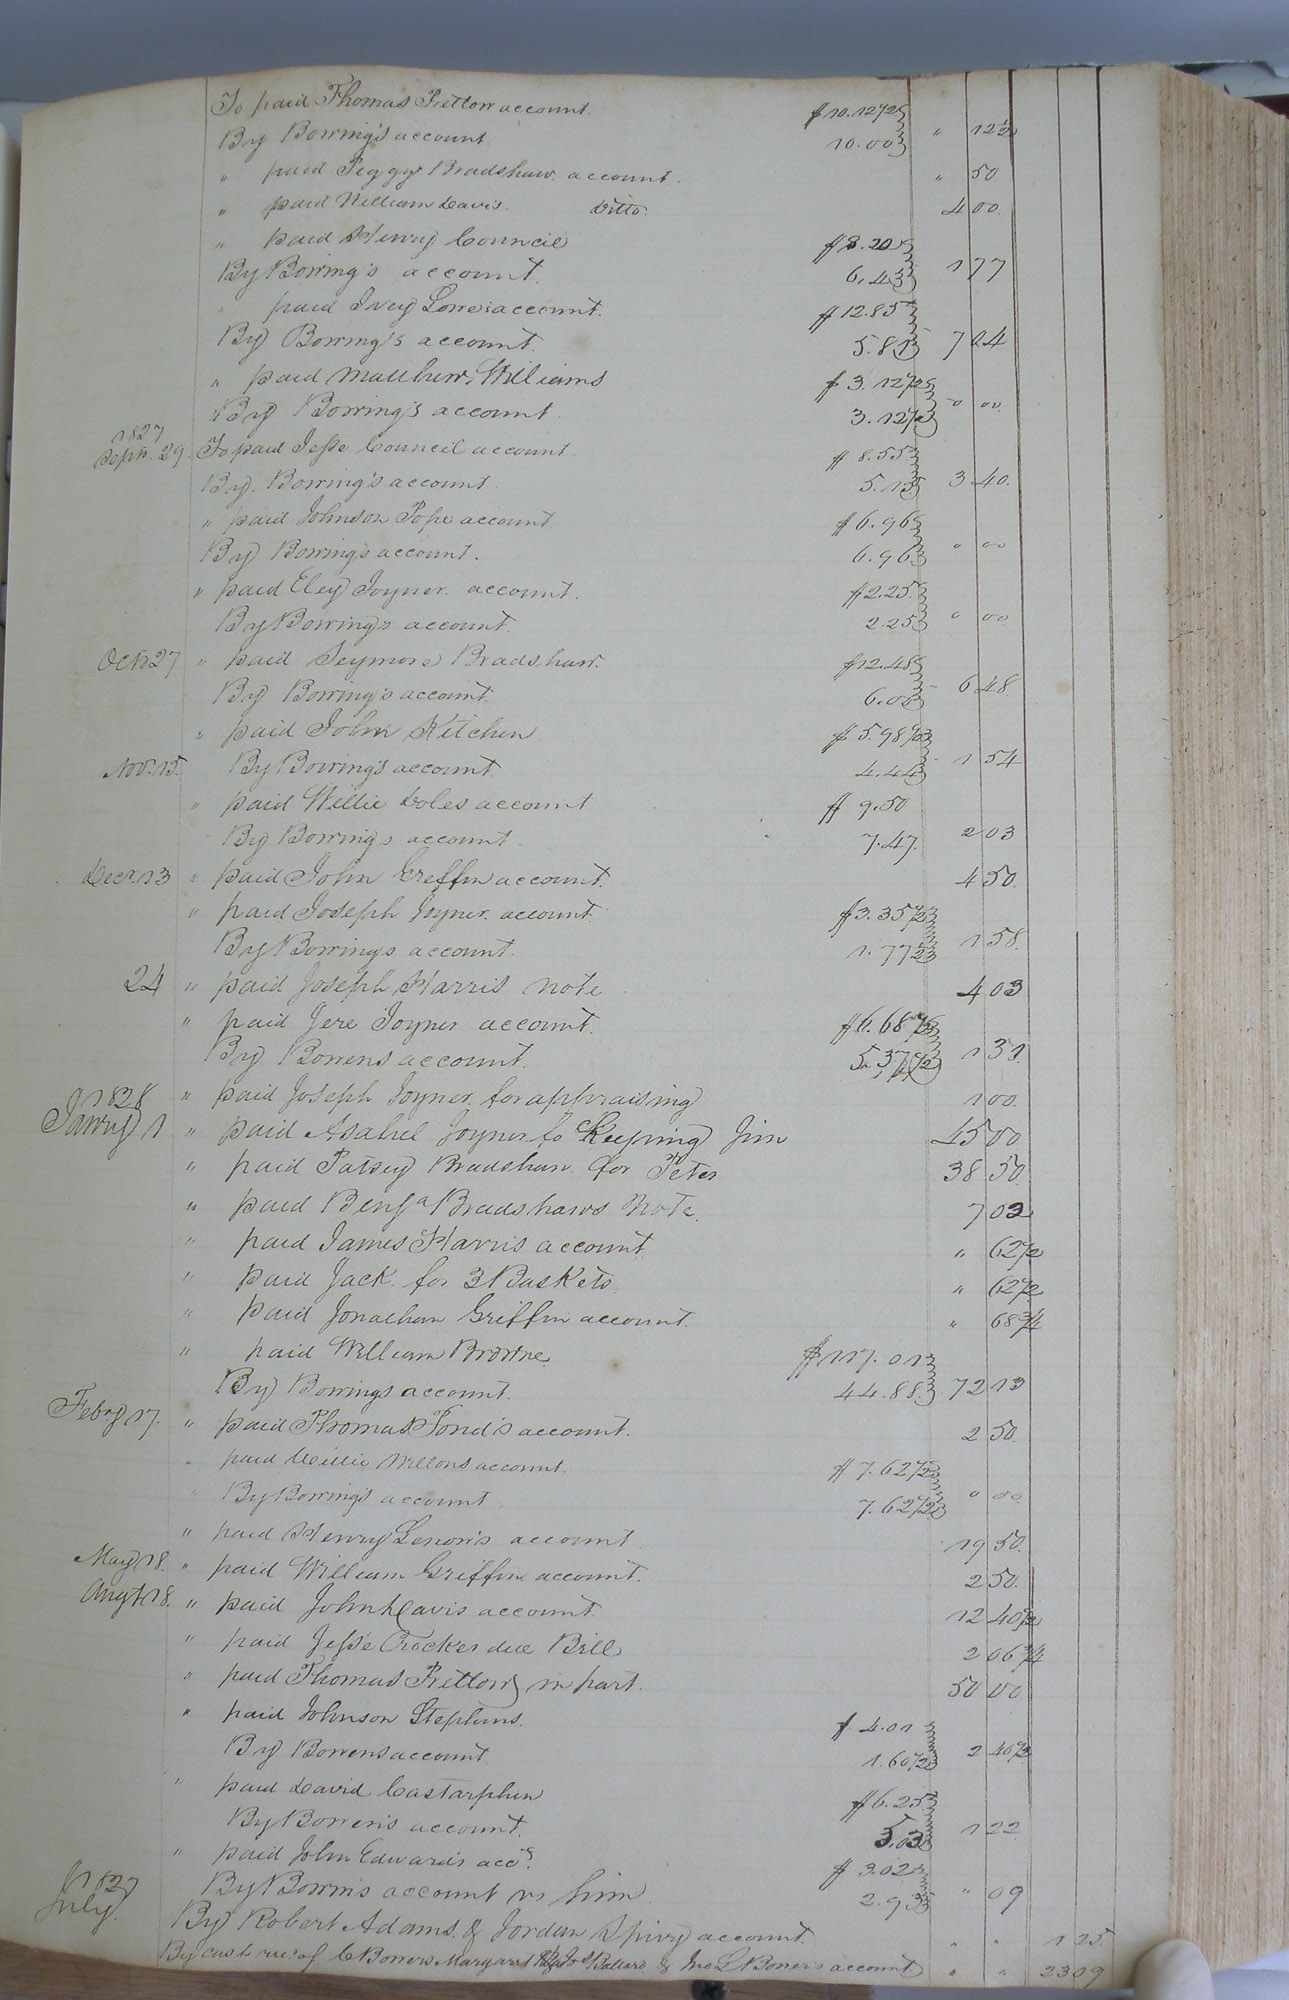 To paid Thomas Pretlow account. $10.12 1/2
By Bowing's account. 10.00 " 12 1/2
" paid Peggy Bradshaw account. " 50
" paid William Davis. ditto. 4 00
" paid Henry Council $8.20
By Bowing's account. 6.43 1 77
" paid Ivey account. $12.85
By Bowing's account. 5.81 7 04
" paid Matthew Williams $3.12 1/2
" By Bowing's account. 3.12 1/2 " 00
1827
Septr. 29 To paid Jesse Council account. $8.55
By Bowing's account 5.15 3 40.
" paid Johnson Pope account. $6.96
By Bowing's account. 6.96 " 00
" paid Eley Joyner account. $2.25
By Bowing's account. 2.25 " 00
Octr. 27 " paid Seymore Bradshaw. $12.48
By Bowing's account. 6.00 6 48.
" paid John Kitchen $5.98 1/2
Nov. 15. By Bowing's account. 4.44 1 54
" paid Willie Doles account $9.50
By Bowing's account. 7.47. 2 03
Decr. 13 " paid John Griffin account. 4 50.
" paid Joseph Joyner account. $3.35 1/2
By Bowings account. 1.77 1/2 1 58.
24 " paid Joseph Harris note 4 03
" paid Jere Joyner account. $6.68 1/2
By Bowens account. 5.37 1/2 1 31.
1828 " paid Joseph Joyner for appraising 1 00.
Janry 1 " paid Asahel Joyner for Keeping Jim 45 00
" paid Patsey Bradshaw for Peter 38 50
" paid Benja Bradshaws Note. 7 02
" paid James Harris account. " 62 1/2
" paid Jack for 3 Baskets " 62 1/2
" paid Jonathan Griffin account. " 68 3/4
" paid William Browne $117.01
By Bowings account. 44.88 72 13
Febry 17. " paid Thomas Pond's account. 2 50.
" paid account. $7.62 1/2
" By Bowing's account 7.62 1/2 " 00
" paid Henry account 19 50.
May 18. " paid William Griffin account. 2 50.
Augt 18. " paid John Davis account. 12 40 1/2
" paid Jesse Crocker due Bill 2 06 3/4
" paid Thomas Pretlow in part. 50 00
" paid Johnson Stephens. $4.01
By Bowens account. 1.60 1/2 2 40 1/2
" paid David Castarphen $6.25
By Bowen's account. 5.03 1 22
" paid John Edward's accs. $3.02
1827 By Bowin's account vs him 2.93 " 09
July. By Robert Adams & Jordan Spivey account. " " 1 25
By cash of C Bowers, Margaret Ballard & Jno L Bowen's account " " 23 09